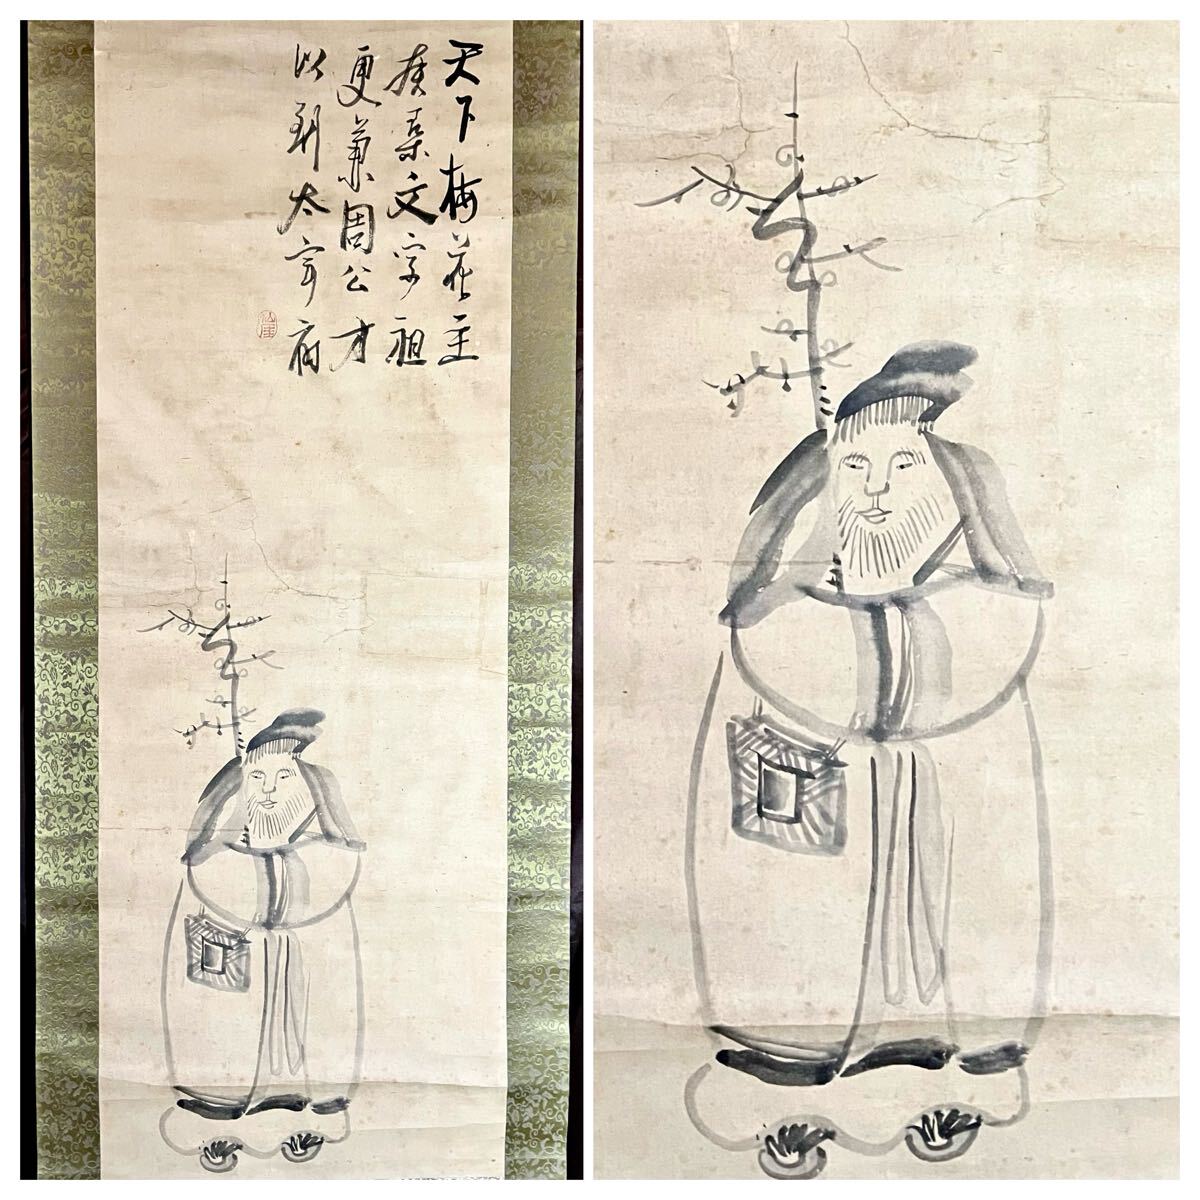 天下梅花主
扶桑文字祖
更兼周公才
以到太宰府
仙厓